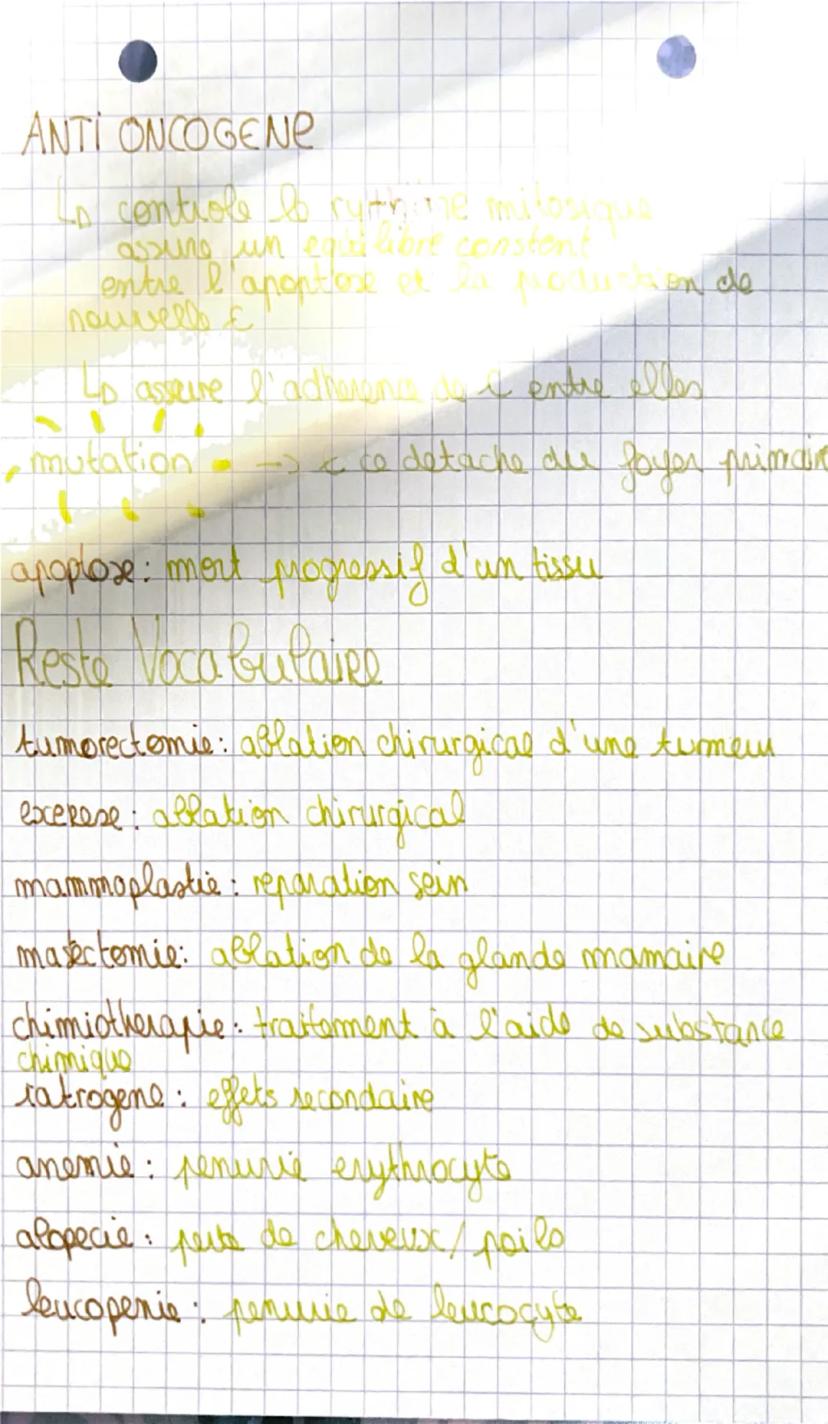 ANTI ONCOGENE
↳ controle le rythme mitosique
assure un equilibre constant
entre l'apoptose et la production de
nouvelle C
↳ assure l'adherence de C entre elles
mutation -> C ce detache du foyer primaire
apoptose: mort progressif d'un tissu
Reste Vocabulaire
tumorectomie: ablation chirurgical d'une tumeur
excerese: ablation chirurgical
mammoplastie: reparation sein
masectomie: ablation de la glande mamaire
chimiotherapie: traitement à l'aide de substance
chimique
iatrogene: effets secondaire
anemie: penurie erythrocyte
alopecie: perte de cheveux/poils
leucopenie: penurie de leucocyte